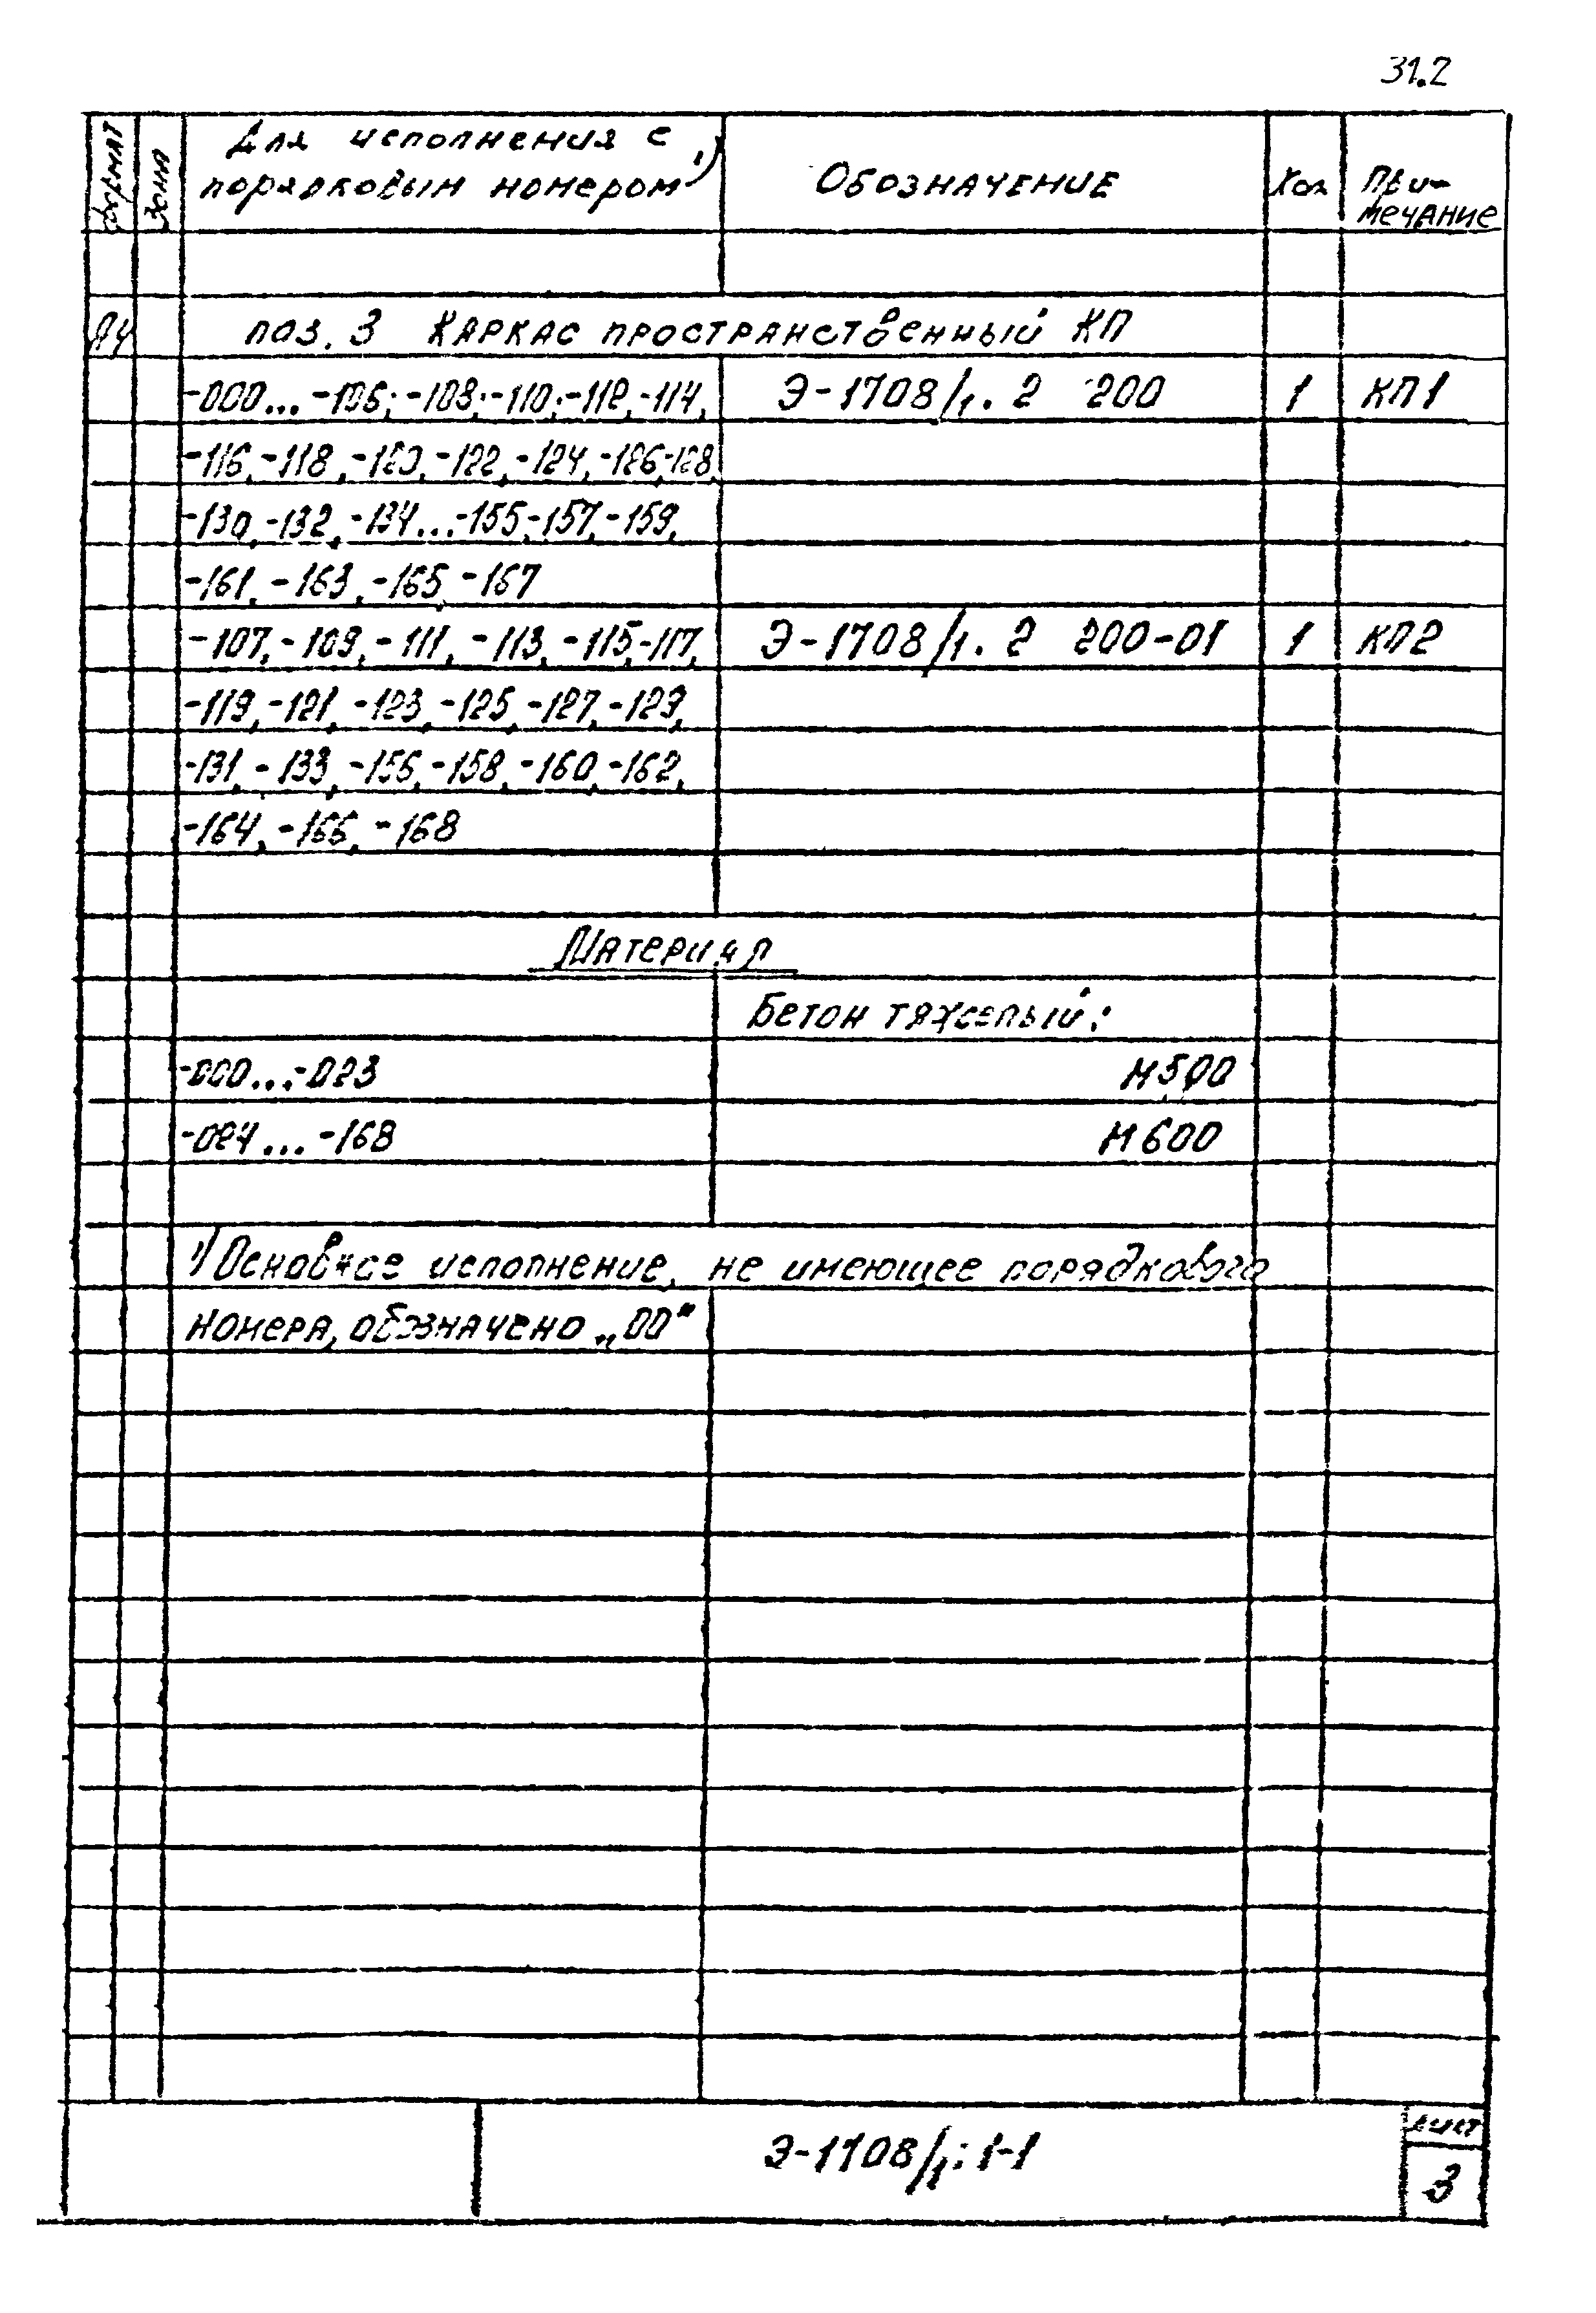 31.2
Формат
Зона
Для исполнения с
порядковым номером 1)
Обозначение
Кол
При-
мечание
А4 поз. 3 Каркас пространственный КП
-000...-106,-108,-110,-112,-114, Э-1708/1. 2 200 1 КП1
-116,-118,-120,-122,-124,-126,-128,
-130,-132,-134...-155,-157,-159,
-161,-163,-165,-167
-107,-109,-111,-113,-115,-117, Э-1708/1. 2 200-01 1 КП2
-119,-121,-123,-125,-127,-129,
-131,-133,-156,-158,-160,-162,
-164,-166,-168
Материал
Бетон тяжелый:
-000...-023 М500
-024...-168 М600
1) Основное исполнение, не имеющее порядкового
номера, обозначено „00"
Э-1708/1. 1-1
Лист
3